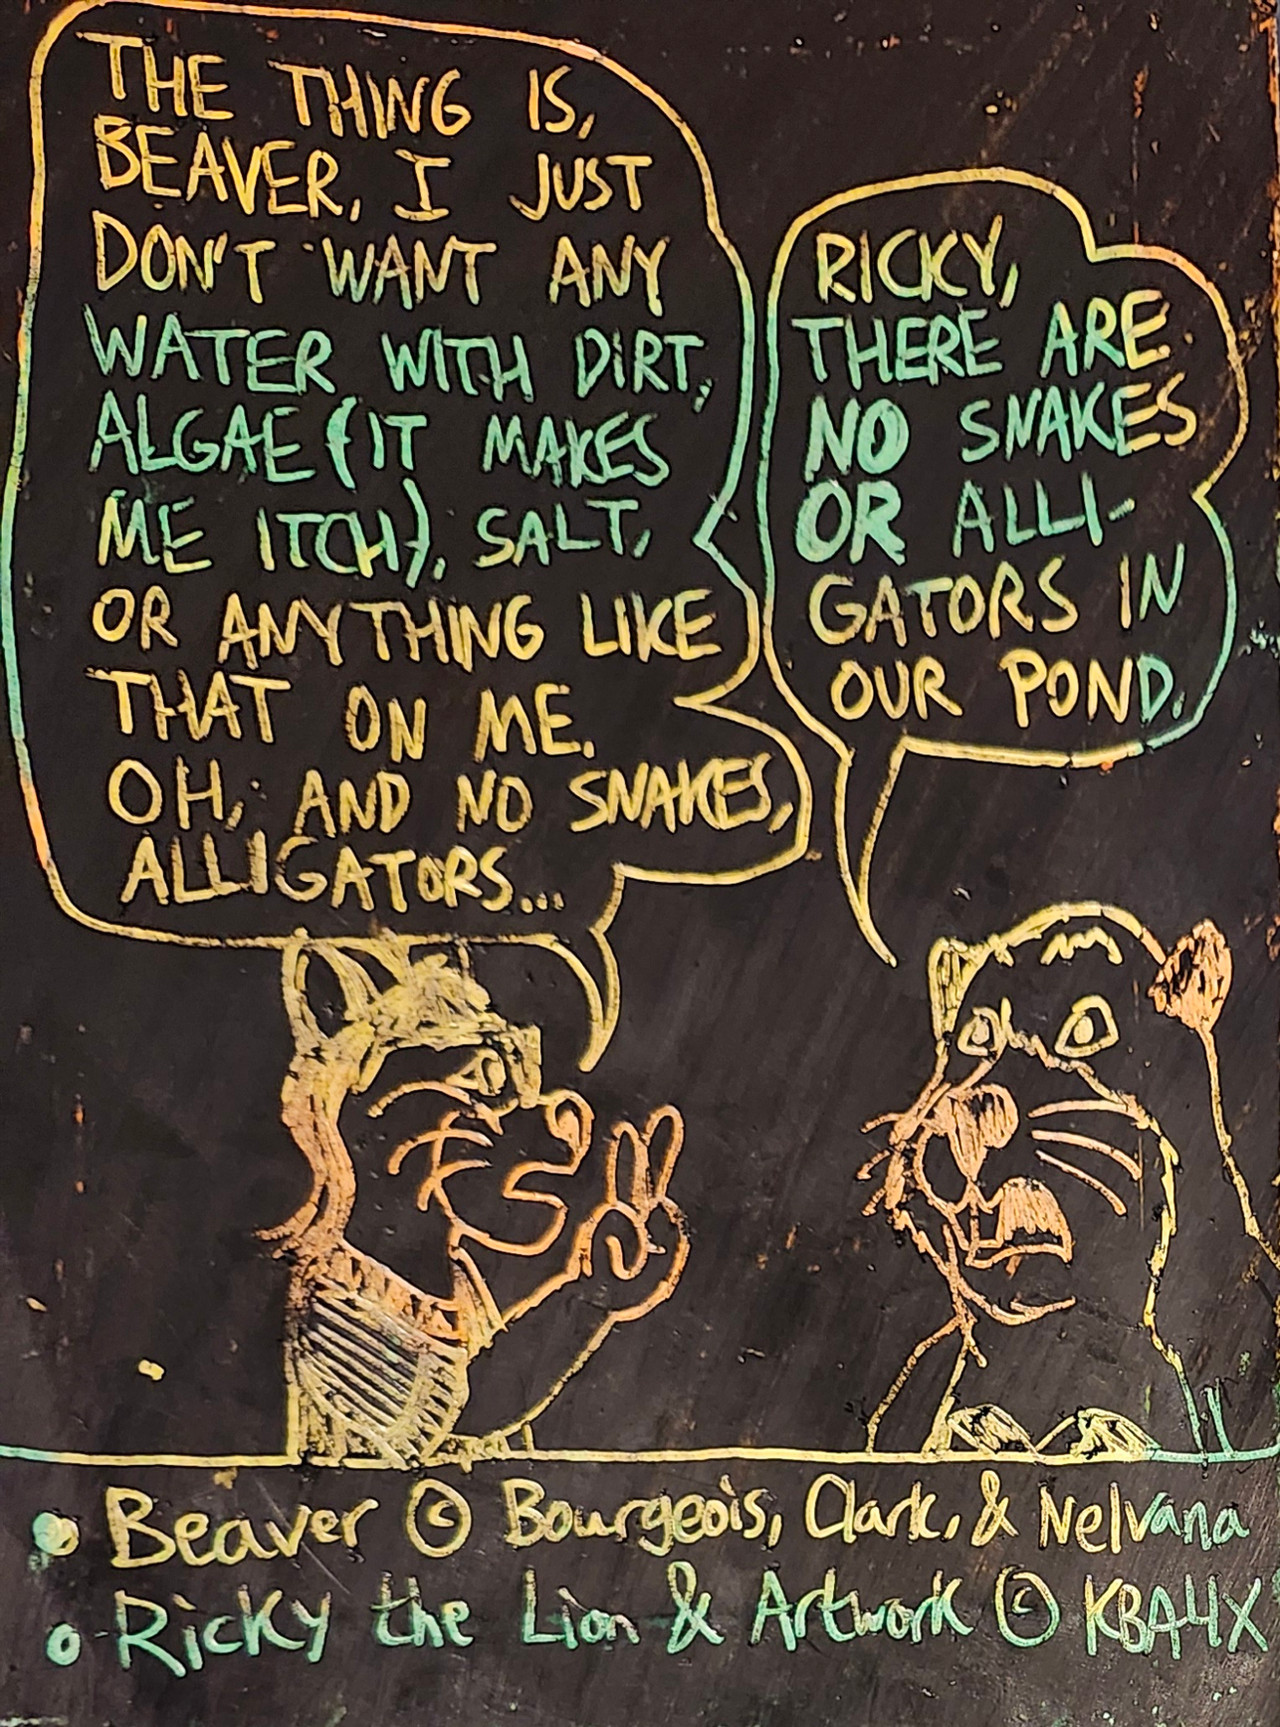 THE THING IS,
BEAVER, I JUST
DON'T WANT ANY
WATER WITH DIRT,
ALGAE (IT MAKES
ME ITCH), SALT,
OR ANYTHING LIKE
THAT ON ME.
OH, AND NO SNAKES,
ALLIGATORS...
RICKY,
THERE ARE
NO SNAKES
OR ALLI-
GATORS IN
OUR POND.
• Beaver © Bourgeois, Clark, & Nelvana
• Ricky the Lion & Artwork © KBA4X